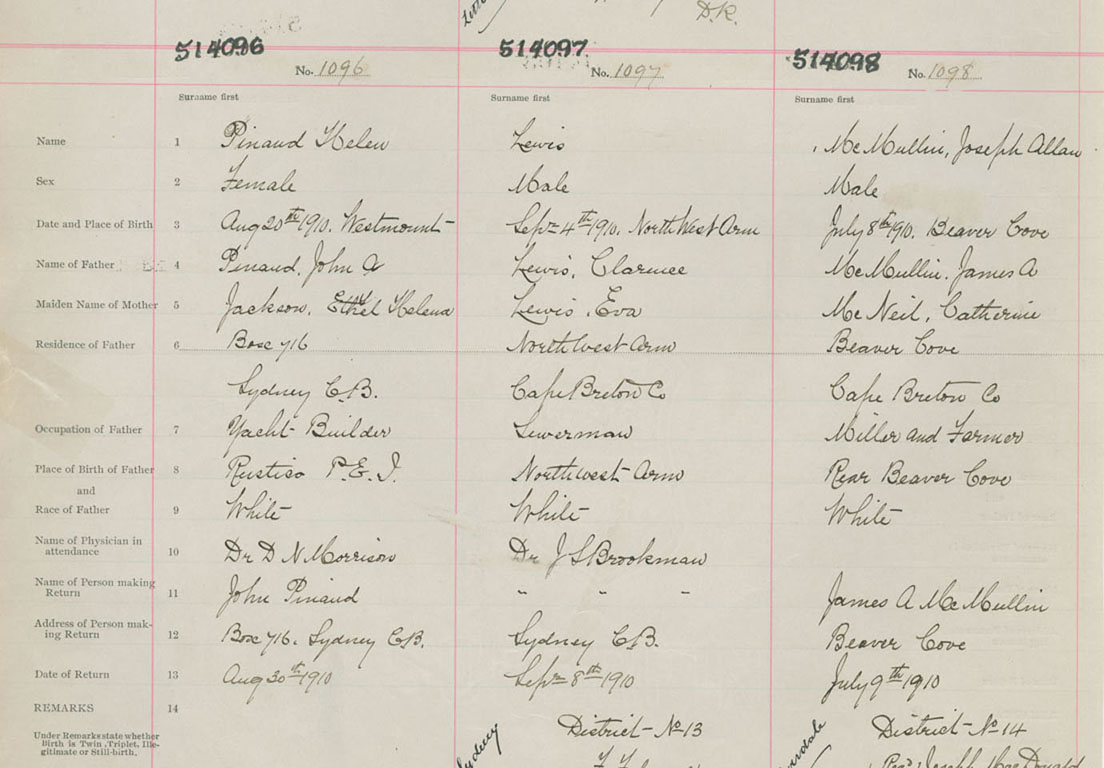 D.R.
514096 514097 514098
No. 1096 No. 1097 No. 1098
Surname first Surname first Surname first
Name 1 Pinaud Helen Lewis McMullin, Joseph Allan
Sex 2 Female Male Male
Date and Place of Birth 3 Aug 20th 1910. Westmount Sept 4th 1910. North West Arm July 8th 1910. Beaver Cove
Name of Father 4 Pinaud, John A Lewis, Clarence McMullin, James A
Maiden Name of Mother 5 Jackson, Ethel Helena Lewis, Eva McNeil, Catherine
Residence of Father 6 Box 716 North West Arm Beaver Cove
Sydney C.B. Cape Breton Co Cape Breton Co
Occupation of Father 7 Yacht Builder Sewerman Miller and Farmer
Place of Birth of Father 8 Rustico P.E.I. North West Arm Rear Beaver Cove
and
Race of Father 9 White White White
Name of Physician in
attendance 10 Dr D N Morrison Dr J S Brookman
Name of Person making
Return 11 John Pinaud " " " James A McMullin
Address of Person mak-
ing Return 12 Box 716. Sydney C.B. Sydney C.B. Beaver Cove
Date of Return 13 Aug 30th 1910 Sept 8th 1910 July 9th 1910
REMARKS 14
Under Remarks state whether
Birth is Twin, Triplet, Ille-
gitimate or Still-birth.
Sydney District No 13 District No 14
Rev Joseph MacDonald